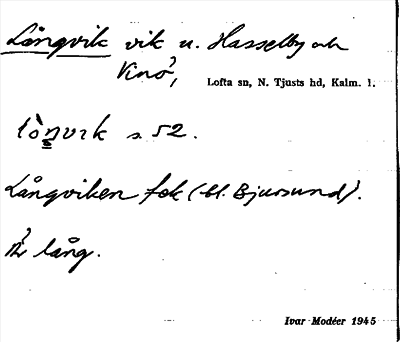 Långvik vik u. Hasselby och
Vinö, Lofta sn, N. Tjusts hd, Kalm. l.
lòŋvik s 52.
Långviken fsk (bl. Bjursund).
Är lång.
Ivar Modéer 1945